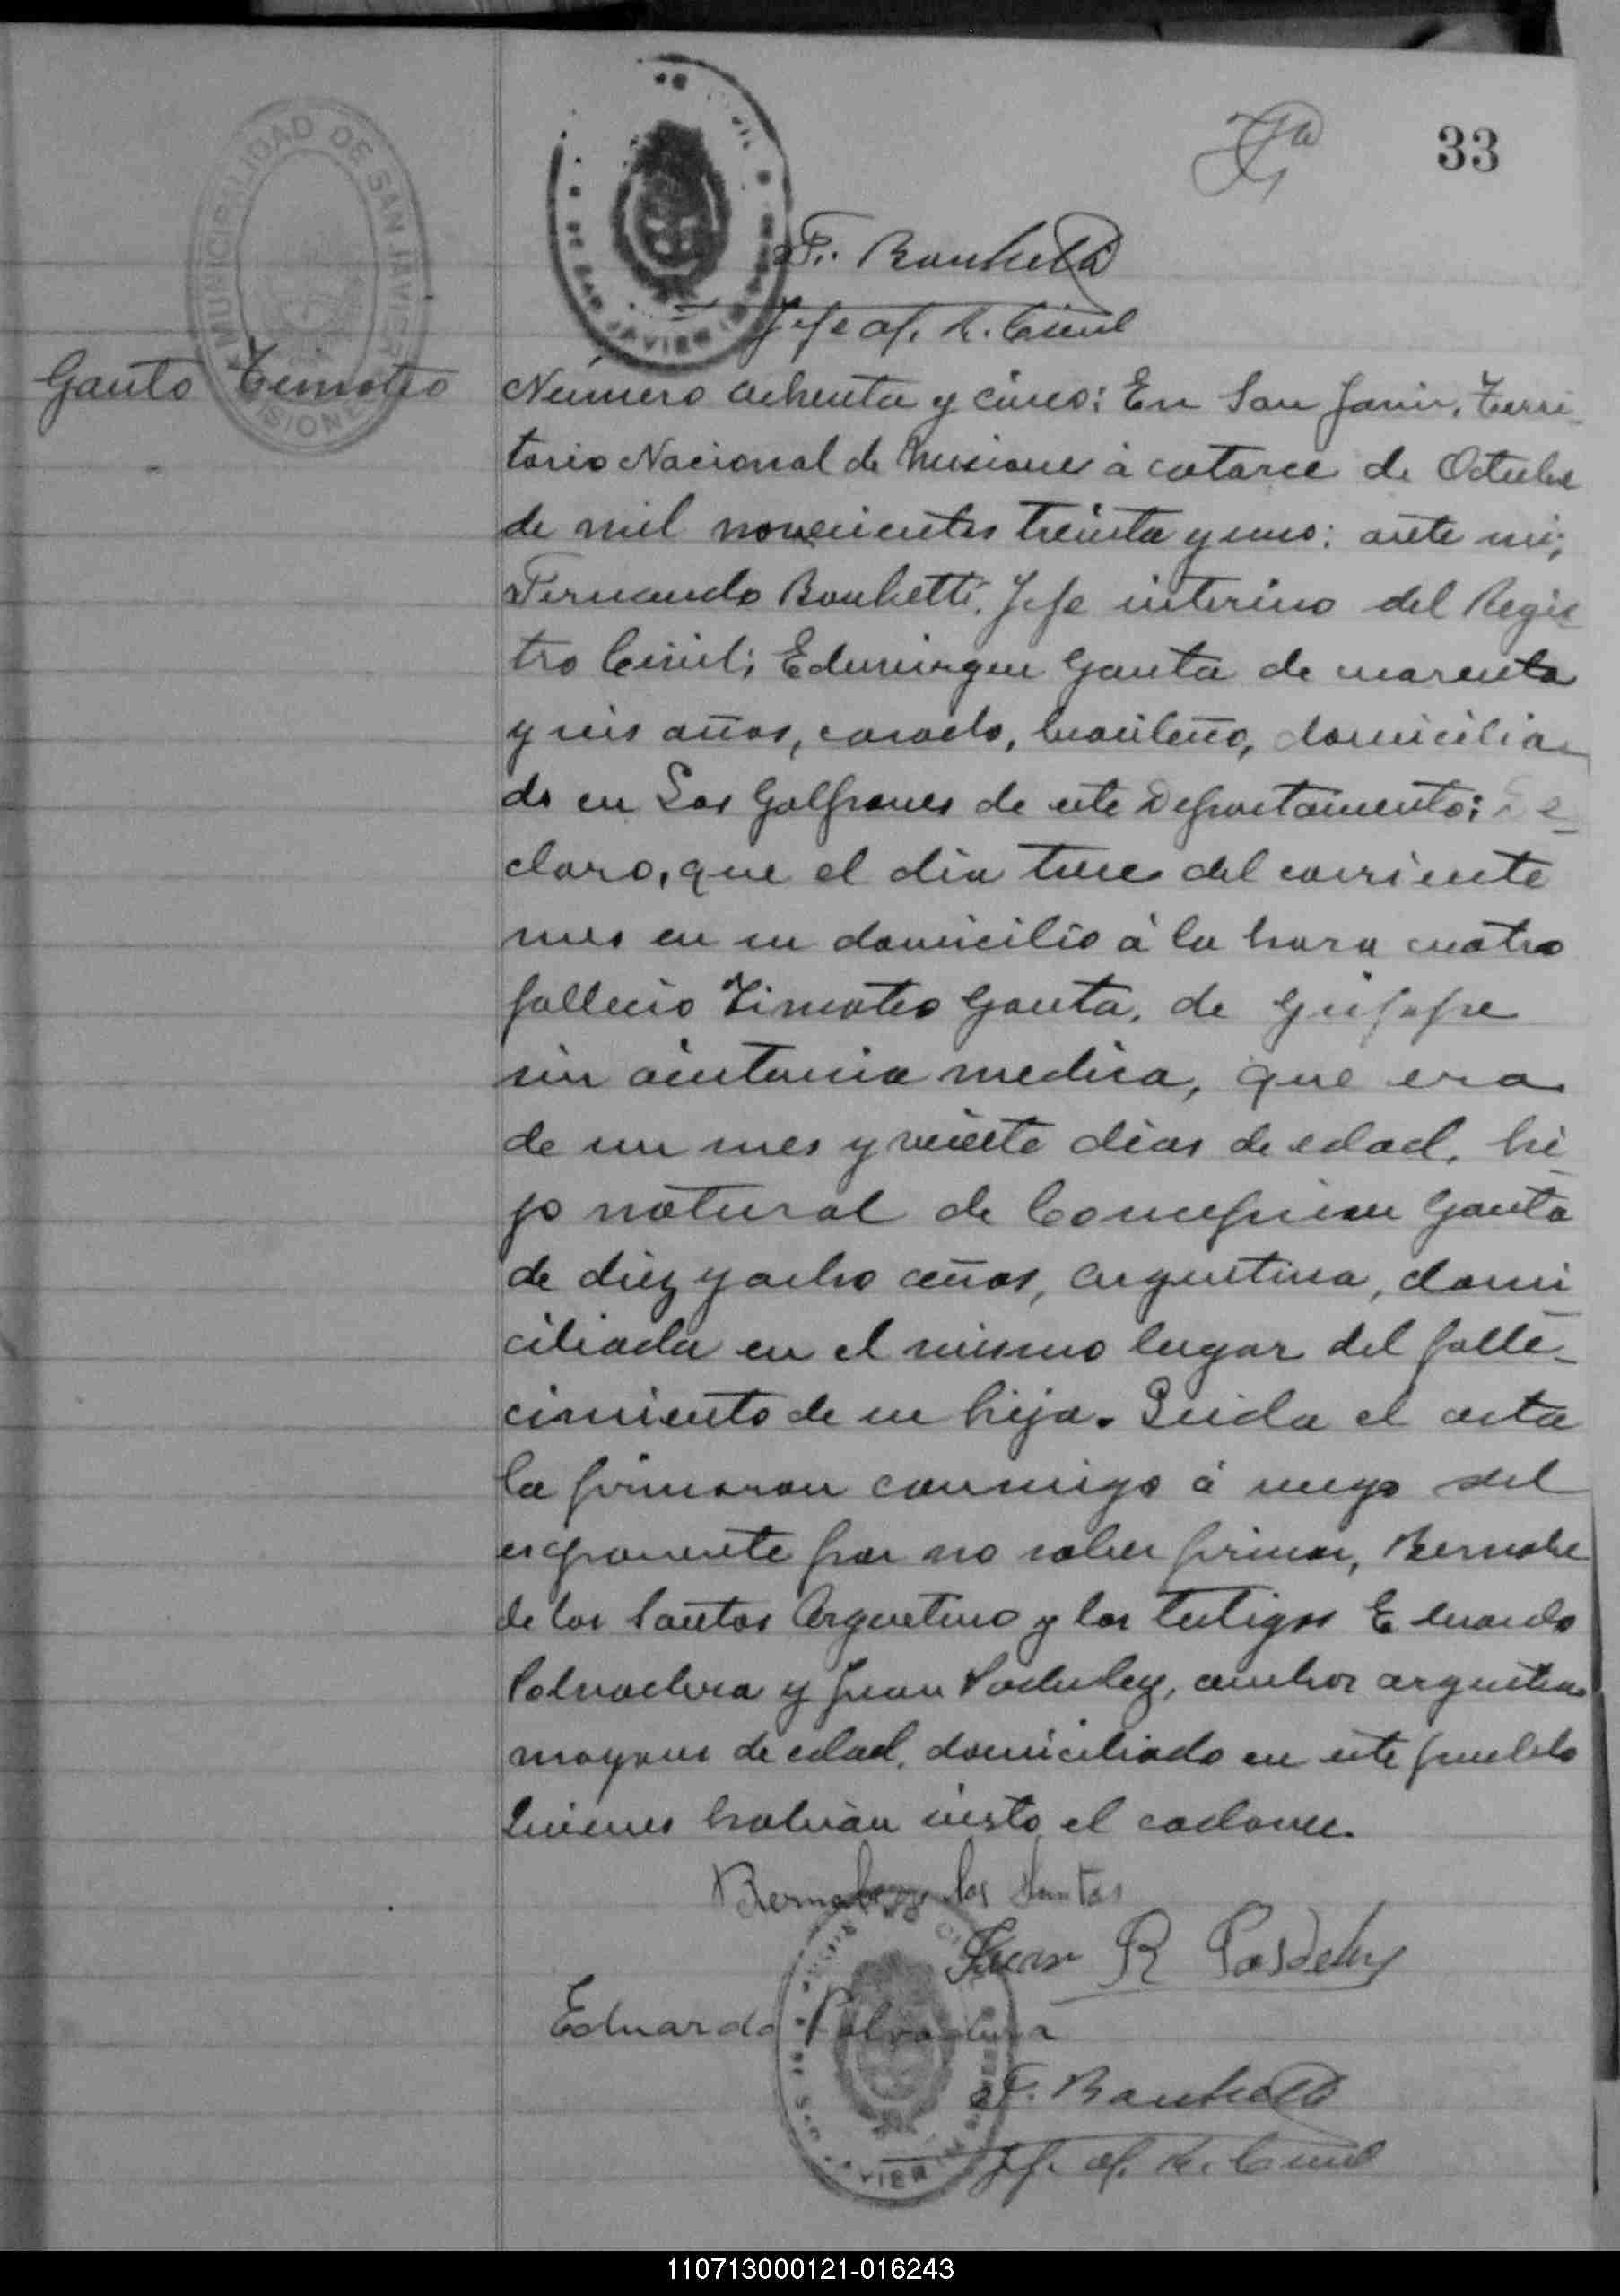 33
MUNICIPALIDAD DE SAN JAVIER
MISIONES
DE SAN JAVIER
F. Bonhetti
Jefe of. R. Civil
Gauto Timoteo
Número ochenta y cinco: En San Javier, Terri
torio Nacional de Misiones à catorce de Octubre
de mil novecientos treinta y uno: ante mi;
Fernando Bonhetti, Jefe interino del Regis
tro Civil; Eduvirgen Gauta de cuarenta
y seis años, casado, brasileño, domicilia
do en Los Galpones de este Departamento: De
claro, que el dia trece del corriente
mes en su domicilio à la hora cuatro
fallecio Timoteo Gauta, de
sin asistencia medica, que era
de un mes y veinte dias de edad, hi
jo natural de Concepcion Gauta
de diez y ocho años, argentina, domi
ciliada en el mismo lugar del falle-
cimiento de su hijo. Leida el acta
la firmaron conmigo à ruego del
exponente por no saber firmar, Bernabe
de los Santos Argentino y los testigos Eduardo
Polvadera y Juan Posdeley, ambos argentinos
mayores de edad, domiciliado en este pueblo
Quienes habian visto el cadaver.
Bernabe de los Santos
Juan R Posdeley
Eduardo Polvadera
F. Bonhetti
Jef. of. R. Civil
110713000121-016243